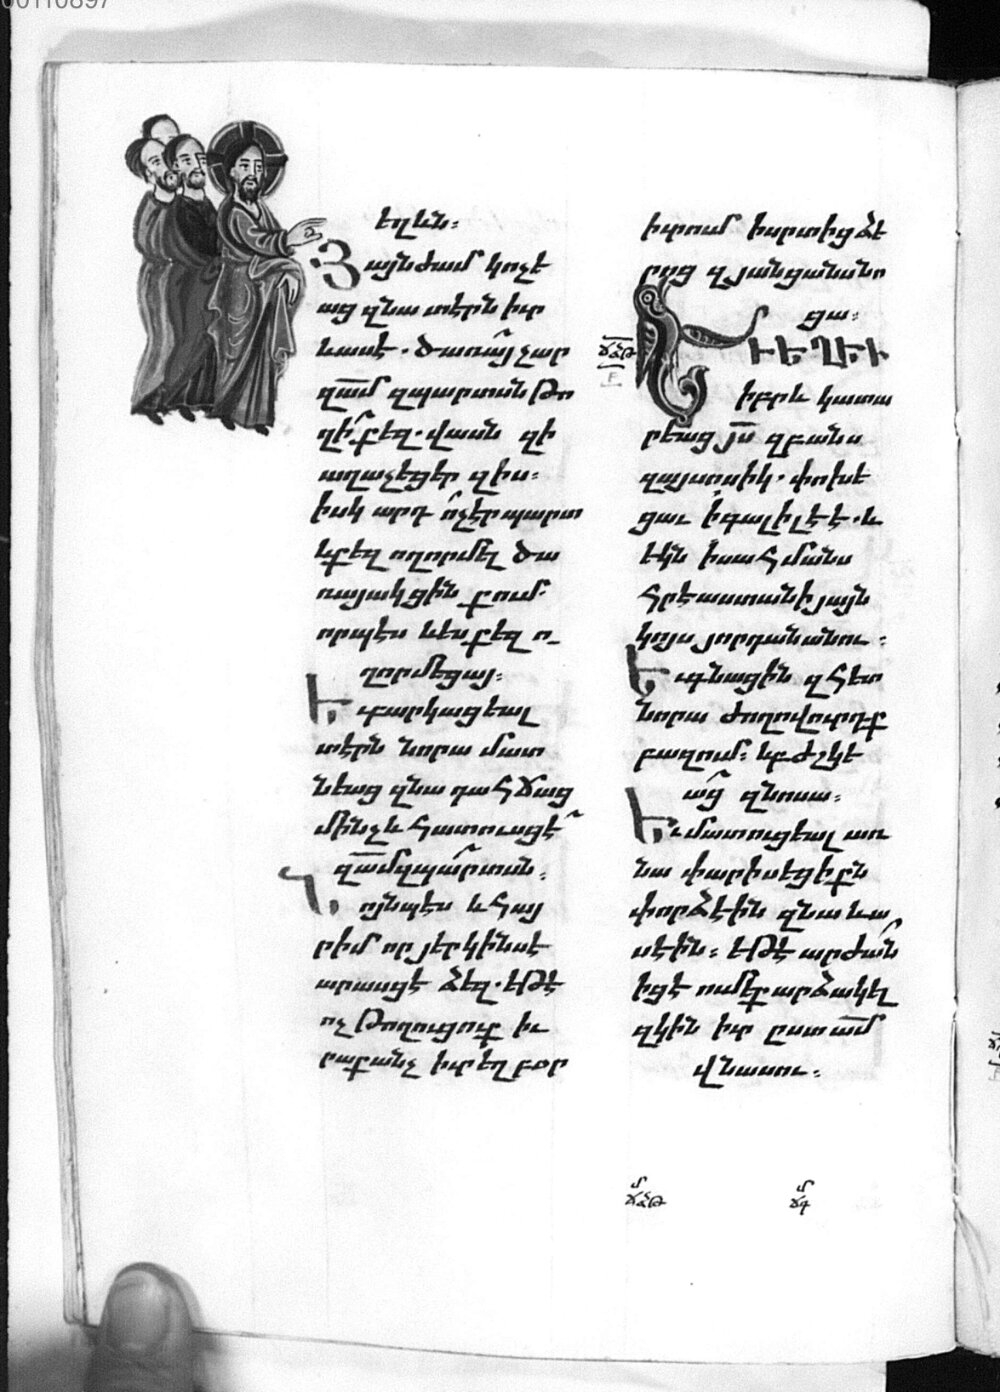 00110897
եղևն։
Յայնժամ կոչե
աց զնա տէրն իւր
ևասէ․ ծառա՛յ չար
զա̅մ զպարտսն թո
ղի՛ քեզ․ վասն զի
աղաչեցեր զիս։
իսկ արդ ո՞չ էր պարտ
և քեզ ողորմել ծա
ռայակցին քում․
որպէս և ես քեզ ո_
ղորմեցայ։
Եւ բարկացեալ
տէրն նորա մատ
նեաց զնա դահճաց
մինչև հատուսցէ՛
զա̅մ զպա՛րտսն։
Նոյնպէս և հայ
րիմ որ յերկինսէ
արասցէ ձեզ․ եթէ
ոչ թողուցուք իւ
րաքանչ իւր եղբօր
իւրում ի սրտից ձե
րոց զյանցանսնո
ցա։
ՃՁԹ
Բ
ԵՒ ԵՂԵՒ
իբրև կատա
րեաց յս̅ զբանս
զայսոսիկ․ փոխե
ցաւ ի գալիլեէ․ և
եկն ի սահմանս
հրէաստանի յայն
կոյս յորդանանու։
Եւ գնացին զհետ
նորա ժողովուրդք
բազում։ և բժշկե
ա՛ց զնոսա։
Եւ մատուցեալ առ
նա փարիսեցիքն
փորձէին զնա և ա
սէին։ եթէ արժա՛ն
իցէ ումեք արձակել
զկին իւր ըստ ա̅մ
վնասու։
մ մ
ՃՁԹ ՃԳ